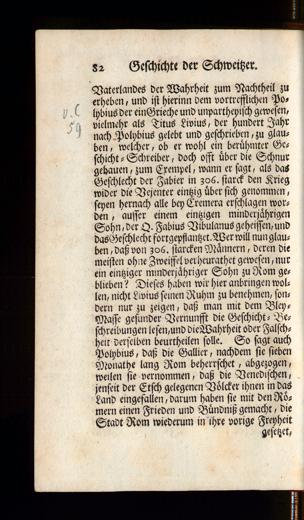 82 Geschichte der Schweitzer.
Vaterlandes der Wahrheit zum Nachtheil zu
erheben, und ist hierinn dem vortrefflichen Po-
lybius der ein Grieche und unpartheyisch gewesen,
vielmehr als Titus Livius, der hundert Jahr
nach Polybius gelebt und geschrieben, zu glau-
ben, welcher, ob er wohl ein berühmter Ge-
schicht-Schreiber, doch offt über die Schnur
gehauen, zum Exempel, wann er sagt, als das
Geschlecht der Fabier in 306. starck den Krieg
wider die Vejenter eintzig über sich genommen,
seyen hernach alle bey Cremera erschlagen wor-
den, ausser einem eintzigen minderjährigen
Sohn, der Q. Fabius Vibulanus geheissen, und
das Geschlecht fortgepflantzet. Wer will nun glau-
ben, daß von 306. starcken Männern, deren die
meisten ohne Zweiffel verheurathet gewesen, nur
ein eintziger minderjähriger Sohn zu Rom ge-
blieben? Dieses haben wir hier anbringen wol-
len, nicht Livius seinen Ruhm zu benehmen, son-
dern nur zu zeigen, daß man mit dem Bley-
Masse gesunder Vernunfft die Geschicht-Be-
schreibungen lesen, und die Wahrheit oder Falsch-
heit derselben beurtheilen solle. So sagt auch
Polybius, daß die Gallier, nachdem sie sieben
Monathe lang Rom beherrschet, abgezogen,
weilen sie vernommen, daß die Venedischen,
jenseit der Etsch gelegenen Völcker ihnen in das
Land eingefallen, darum haben sie mit den Rö-
mern einen Frieden und Bündniß gemacht, die
Stadt Rom wiederum in ihre vorige Freyheit
gesetzet,
v. C
59